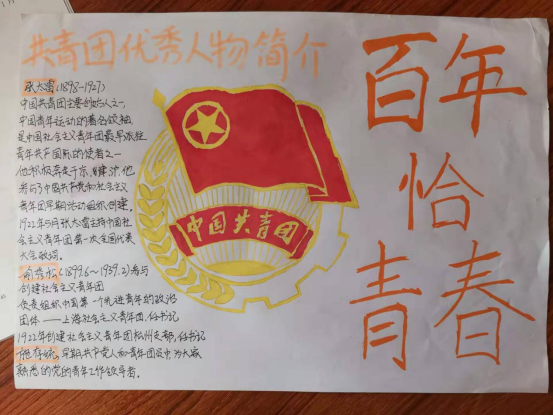 共青团优秀人物简介
张太雷(1898-1927)
中国共青团主要创始人之一,
中国青年运动的著名领袖
是中国社会主义青年团最早派往
青年共产国际的使者之一
他积极奔走于京、津、沪,他
参与了中国共产党和社会主义
青年团早期活动组织创建.
1922年5月张太雷主持中国社
会主义青年团第一次全国代表
大会致词。
俞秀松(1899.6~1939.2)参与
创建社会主义青年团
负责组织中国第一个先进青年的政治
团体——上海社会主义青年团,任书记
1922年创建社会主义青年团杭州支部,任书记
早期共产党人和青年团员中为大家
熟悉的党的青年工作领导者。
中国共青团
百年
恰
青春